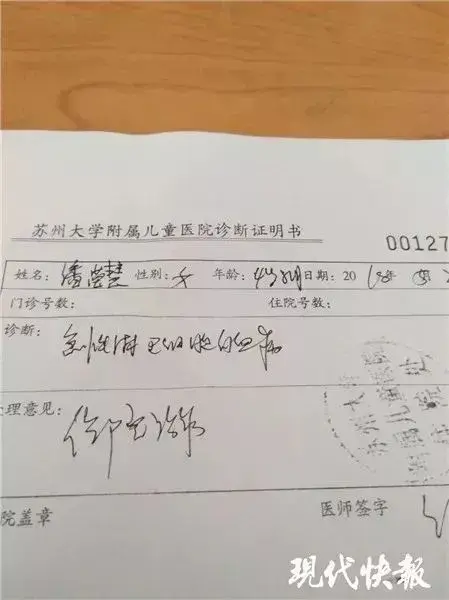 苏州大学附属儿童医院诊断证明书
00127
姓名: 潘莹慧 性别: 女 年龄: 日期: 20 18年
门诊号数: 住院号数:
诊断: 急性淋巴细胞白血病
处理意见:
住院治疗
院盖章 医师签字
现代快报